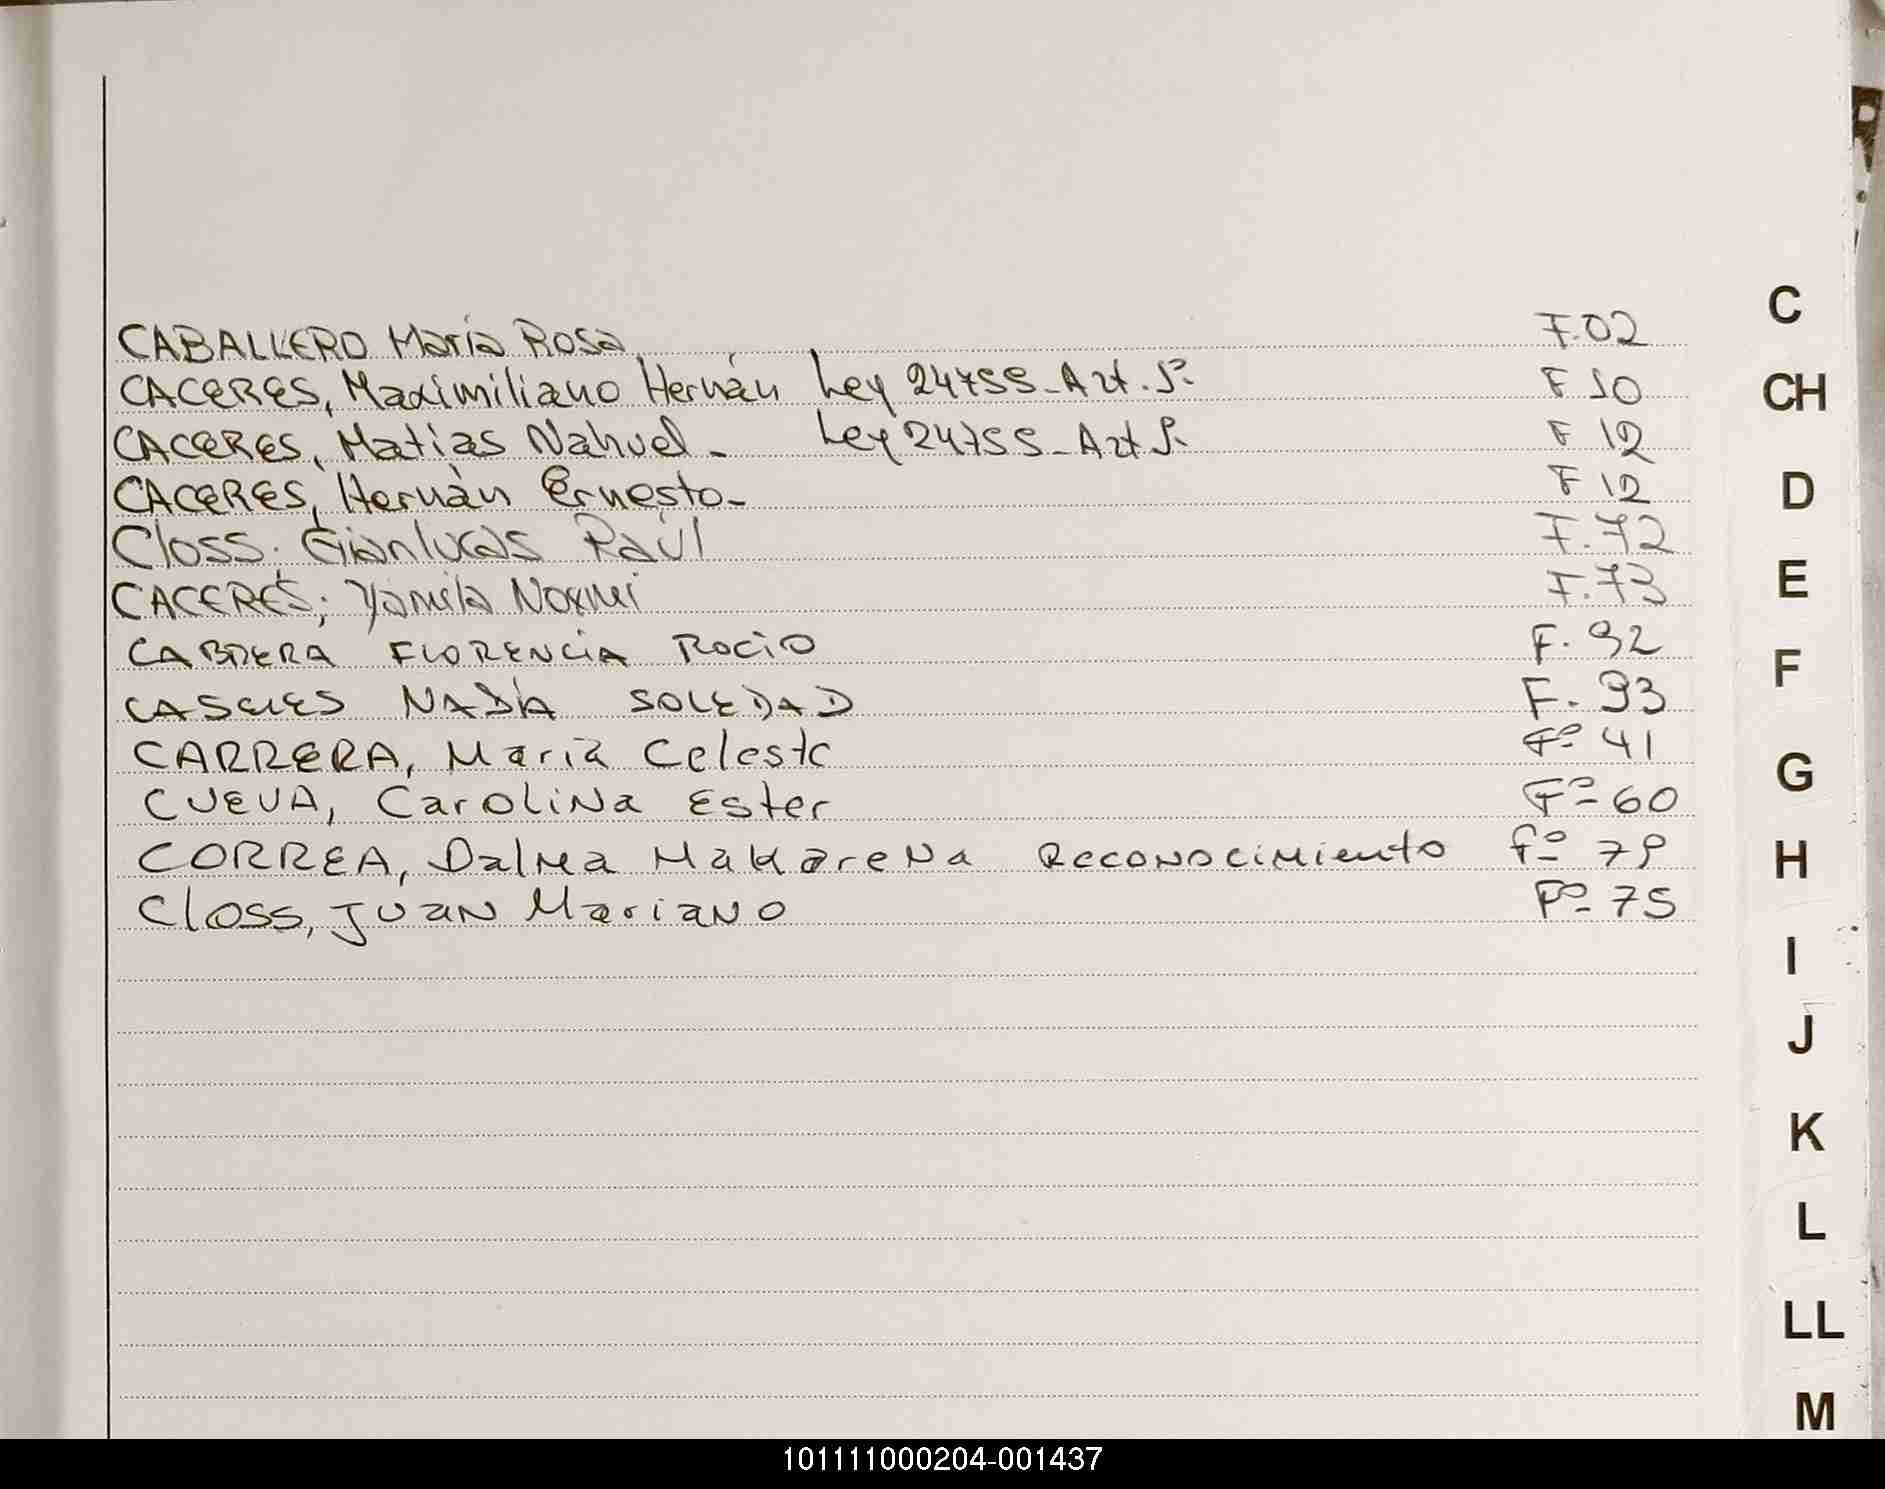 CABALLERO María Rosa. F.02
CACERES, Maximiliano Hernán Ley 24755-Art. 5º. F 10
CACERES, Matías Nahuel. Ley 24755-Art 5. F 12
CACERES, Hernán Ernesto- F 12
Closs; Gianlucas Raúl F.72
CACERES; Yamila Noemi F.73
CABRERA FLORENCIA ROCIO F. 92
NADIA SOLEDAD F. 93
CARRERA, María Celeste Fº 41
CUEVA, Carolina Ester Fº- 60
CORREA, Dalma Makarena Reconocimiento fº 79
Closs, Juan Mariano Fº- 75
C
CH
D
E
F
G
H
I
J
K
L
LL
M
101111000204-001437